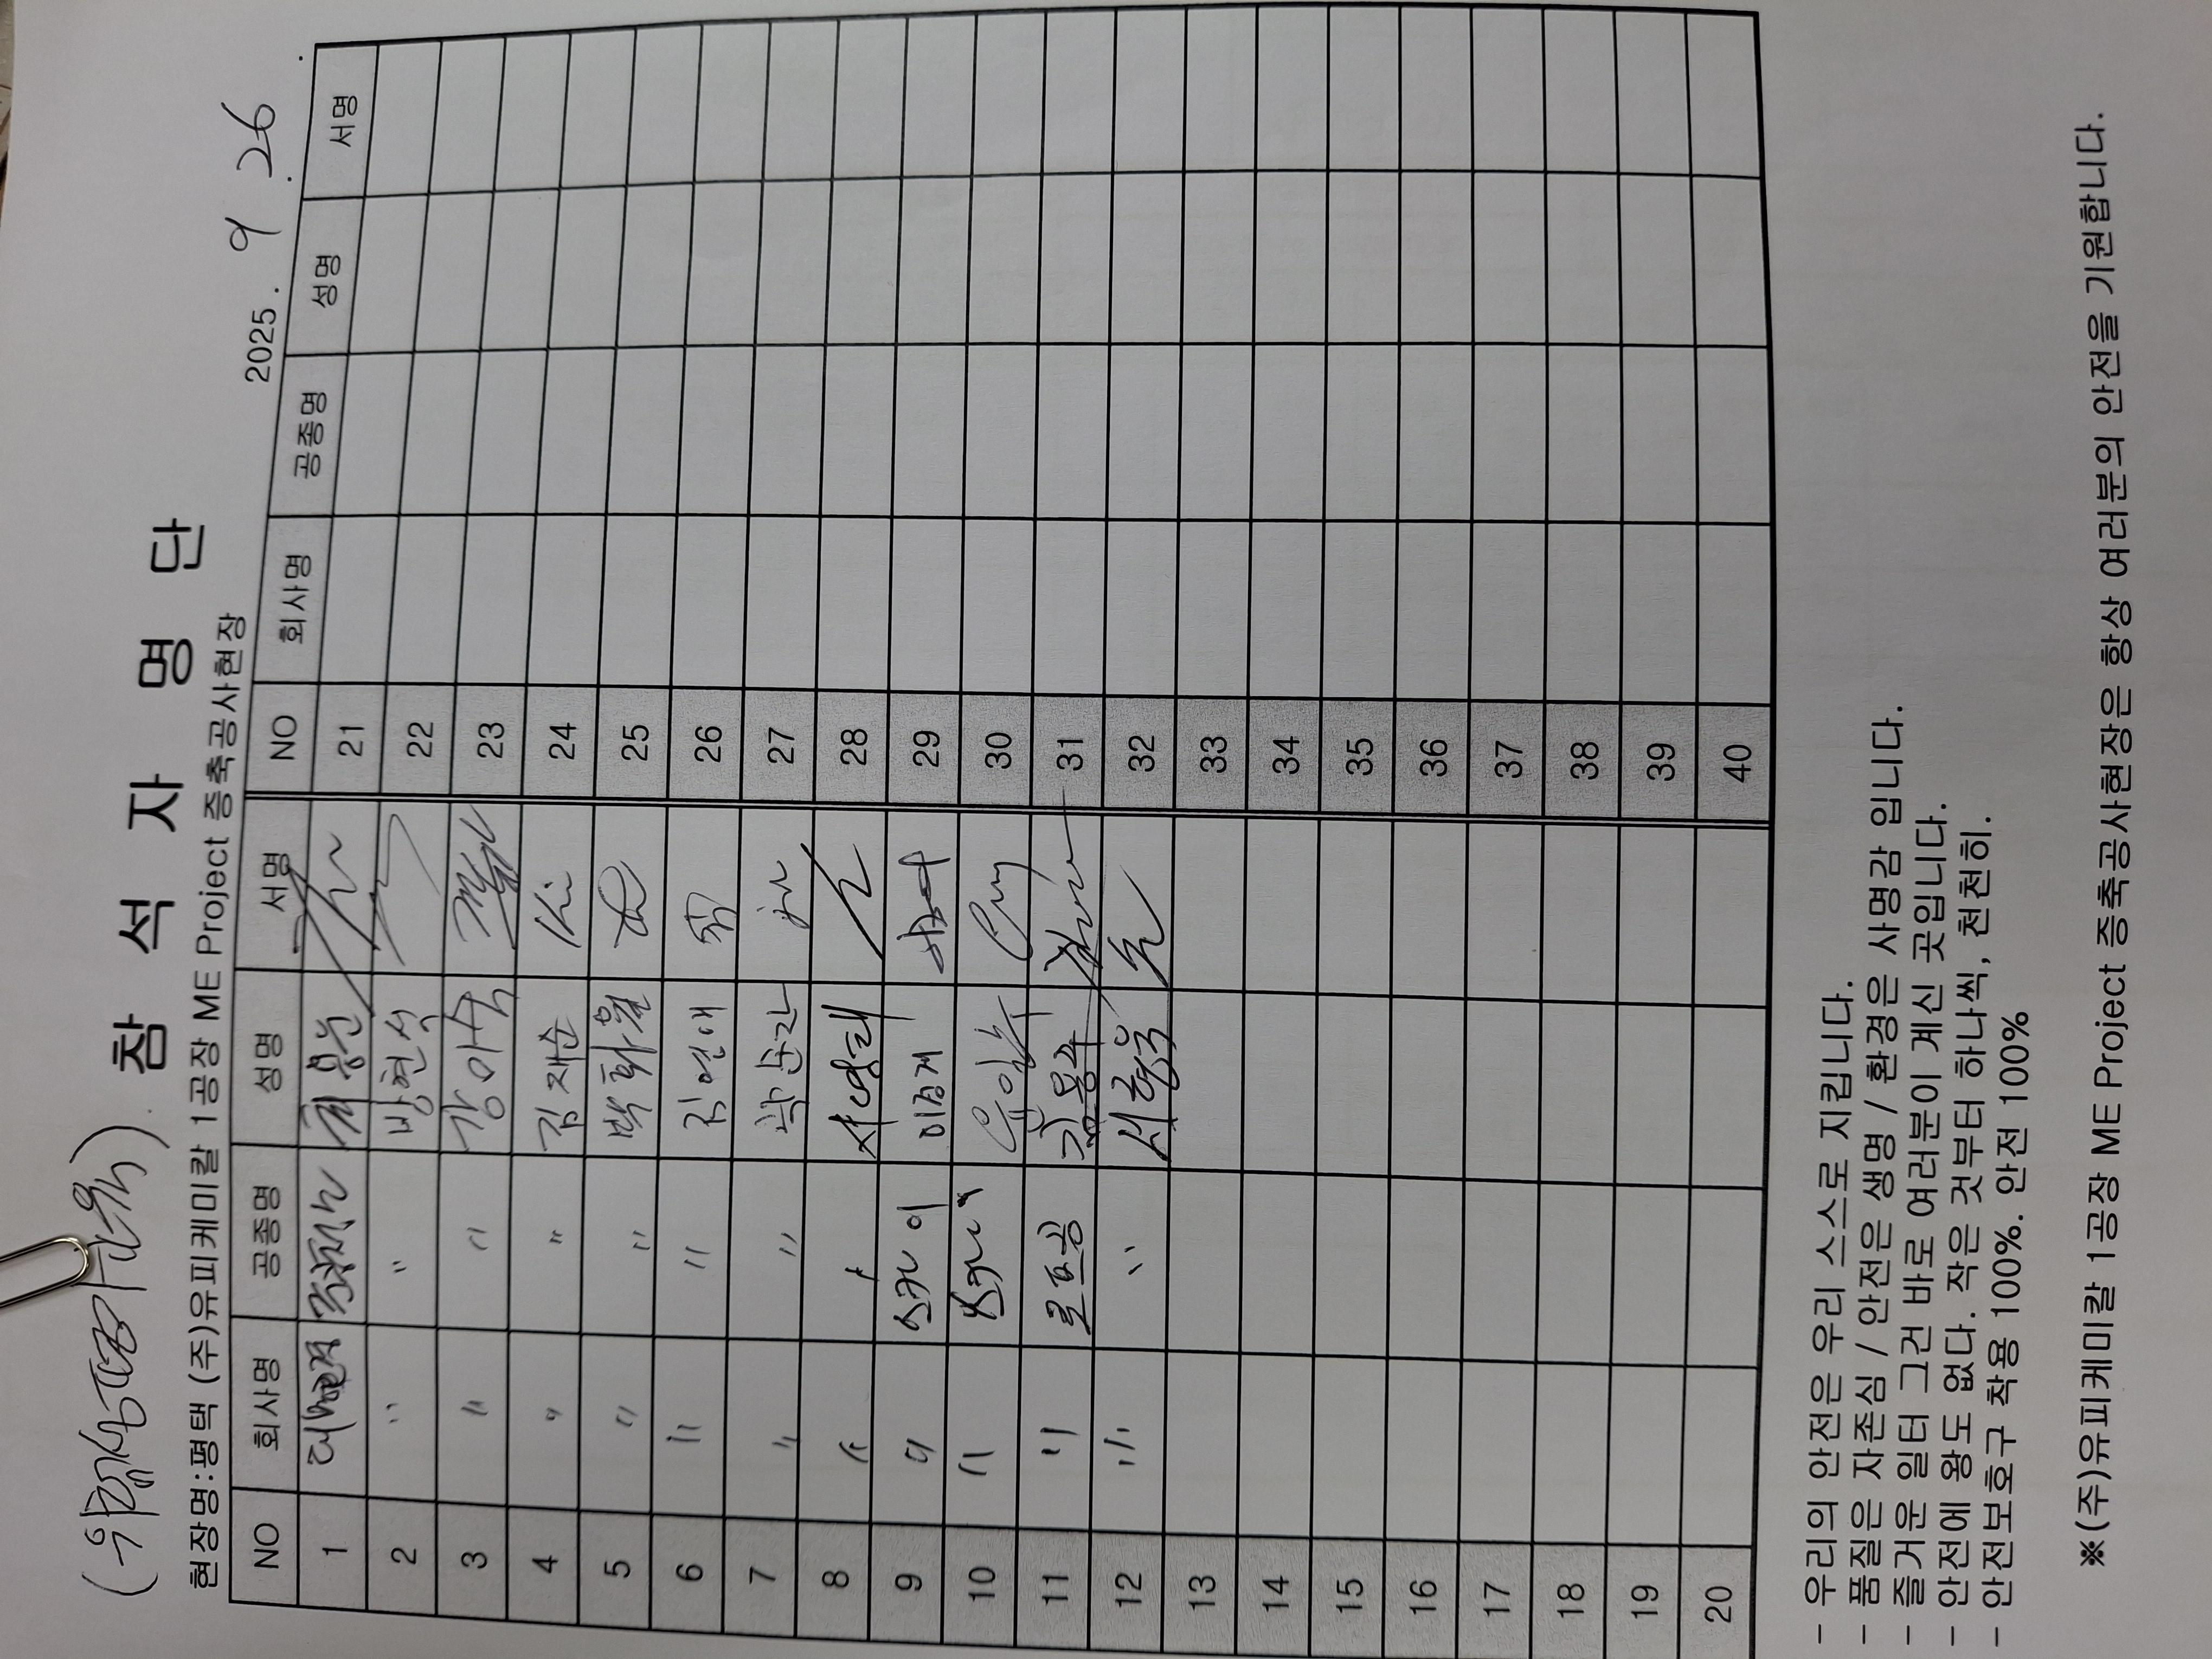 (위험성평가
참 석 자 명 단
현장명:평택 (주)유피케미칼 1공장 ME Project 증축공사현장
2025. 9 . 26 .
NO 회사명 공종명 성명 서명 NO 회사명 공종명 성명 서명
1 21
2 " " 방현석 22
3 " " 23
4 " " 김재순 24
5 " " 박화월 25
6 " " 김연애 26
7 " " 곽순단 27
8 " 28
9 " 스카이 이정재 29
10 " 스카이 30
11 " 31
12 " " 32
13 33
14 34
15 35
16 36
17 37
18 38
19 39
20 40
- 우리의 안전은 우리 스스로 지킵니다.
- 품질은 자존심 / 안전은 생명 / 환경은 사명감 입니다.
- 즐거운 일터 그건 바로 여러분이 계신 곳입니다.
- 안전에 왕도 없다. 작은 것부터 하나씩, 천천히.
- 안전보호구 착용 100%. 안전 100%
※(주)유피케미칼 1공장 ME Project 증축공사현장은 항상 여러분의 안전을 기원합니다.